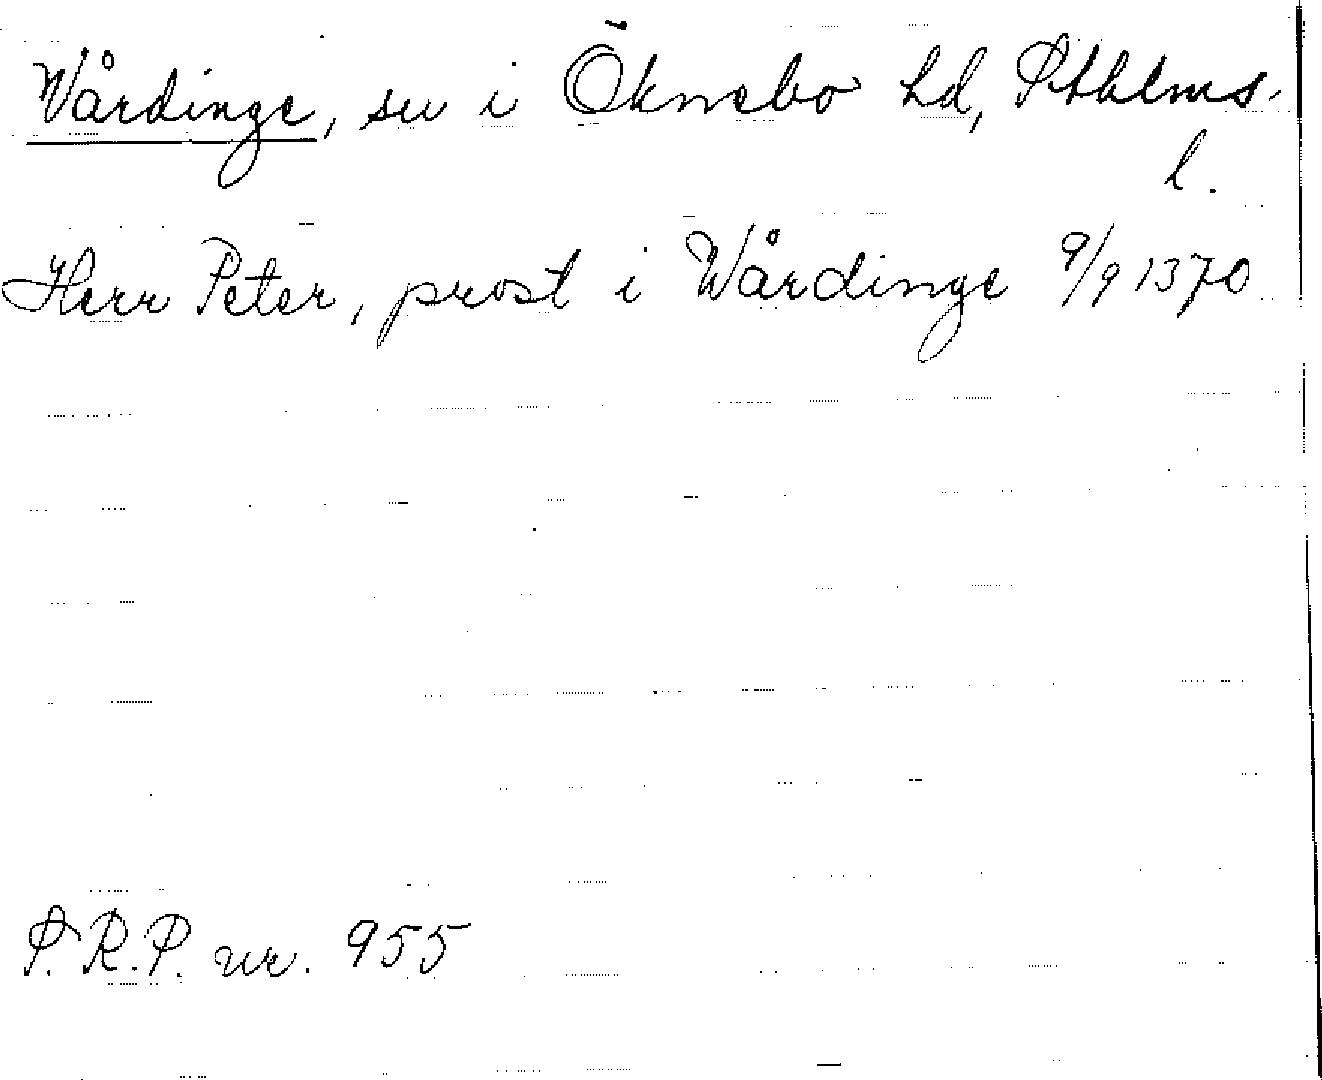 Wårdinge, sn i Öknebo hd, Sthlms
l.
Herr Peter, prost i Wårdinge 9/9 1370
S.R.P. nr. 955